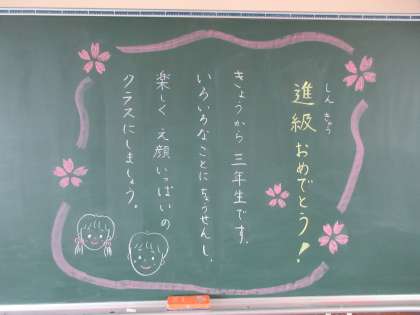 しんきゅう
進級おめでとう!
きょうから三年生です。
いろいろなことにちょうせんし、
楽しくえ顔いっぱいの
クラスにしましょう。